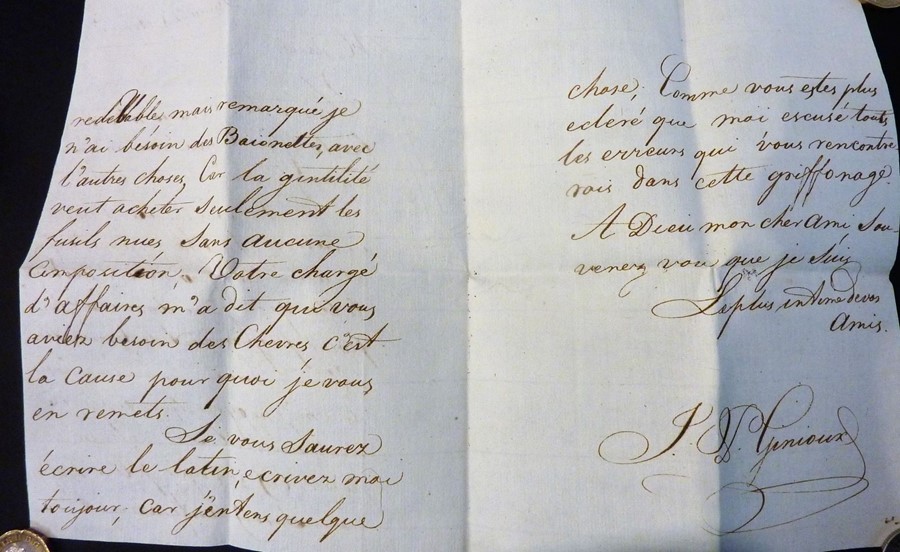 redeVables mais remarqué je
n'ai bésoin des Baionettes, avec
l'autres choses, Car la gintilité
veut acheter seulement les
fusils nues sans aucune
Composition. Votre chargé
d'affaires m'a dit que vous
aviez besoin des Chevres c'est
la cause pour quoi je vous
en remets.
Si vous saurez
écrire le latin, ecrivez moi
toujour, car j'entens quelque
chose, Comme vous estes plus
ecleré que moi escusé touts
les erreurs qui vous rencontre
rois dans cette griffonage.
A Dieu mon cher Ami Sou-
venez vou que je suis
Le plus intime de vos
Amis.
Ginioux